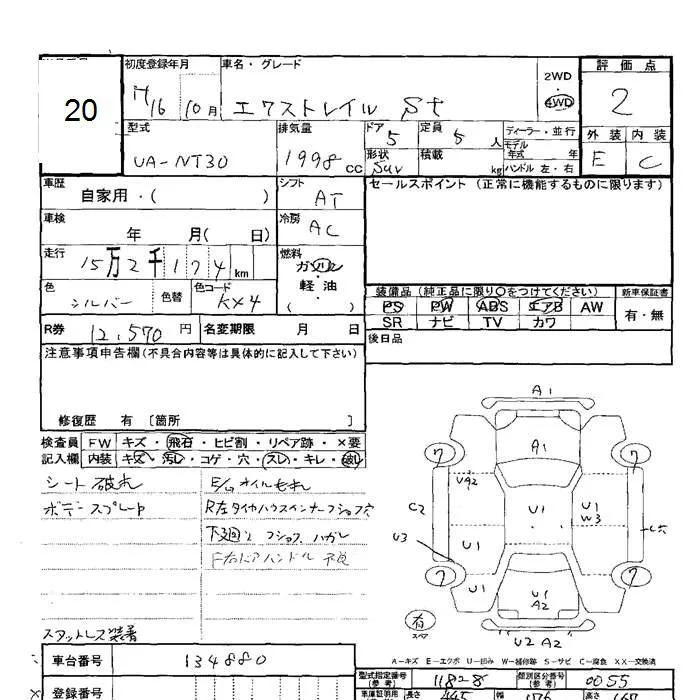 20
初度登録年月
H16 10月
車名・グレード
エクストレイル St
2WD
4WD
評価点
2
型式
UA-NT30
排気量
1998 cc
ドア
5
定員
5 人
形状
SUV
積載
kg
ディーラー・並行
モデル年式 年
ハンドル 左・右
外装 内装
E C
車歴
自家用・( )
シフト
AT
セールスポイント(正常に機能するものに限ります)
車検
年 月( 日)
冷房
AC
走行
15万2千174km
燃料
ガソリン
軽・油
( )
色
シルバー
色替
色コード
KX4
装備品(純正品に限り○をつけてください)
PS PW ABS エアB AW
SR ナビ TV カワ
新車保証書
有・無
R券 12,570円
名変期限 月 日
後日品
注意事項申告欄(不具合内容等は具体的に記入して下さい)
修復歴 有 [箇所 ]
検査員 FW キズ・飛石・ヒビ割・リペア跡・×要
記入欄 内装 キズ・汚レ・コゲ・穴・スレ・キレ・破レ
シート破れ
E/gオイルもれ
ボデースプレー
R左タイヤハウスインナーフショク穴
下廻り フショク ハガレ
F右ドアハンドル不良
スタットレス装着
A1
A1
7
7
UA2
C2
U1
U1
W3
U3
U1
7
7
U1
U1
A2
有
スペア
U2 A2
A-キズ E-エクボ U-凹み W-補修跡 S-サビ C-腐食 XX-交換済
車台番号
134880
型式指定番号
(参考)
11828
類別区分番号
(参考)
0055
登録番号
長さ
445
幅
176
高さ
167